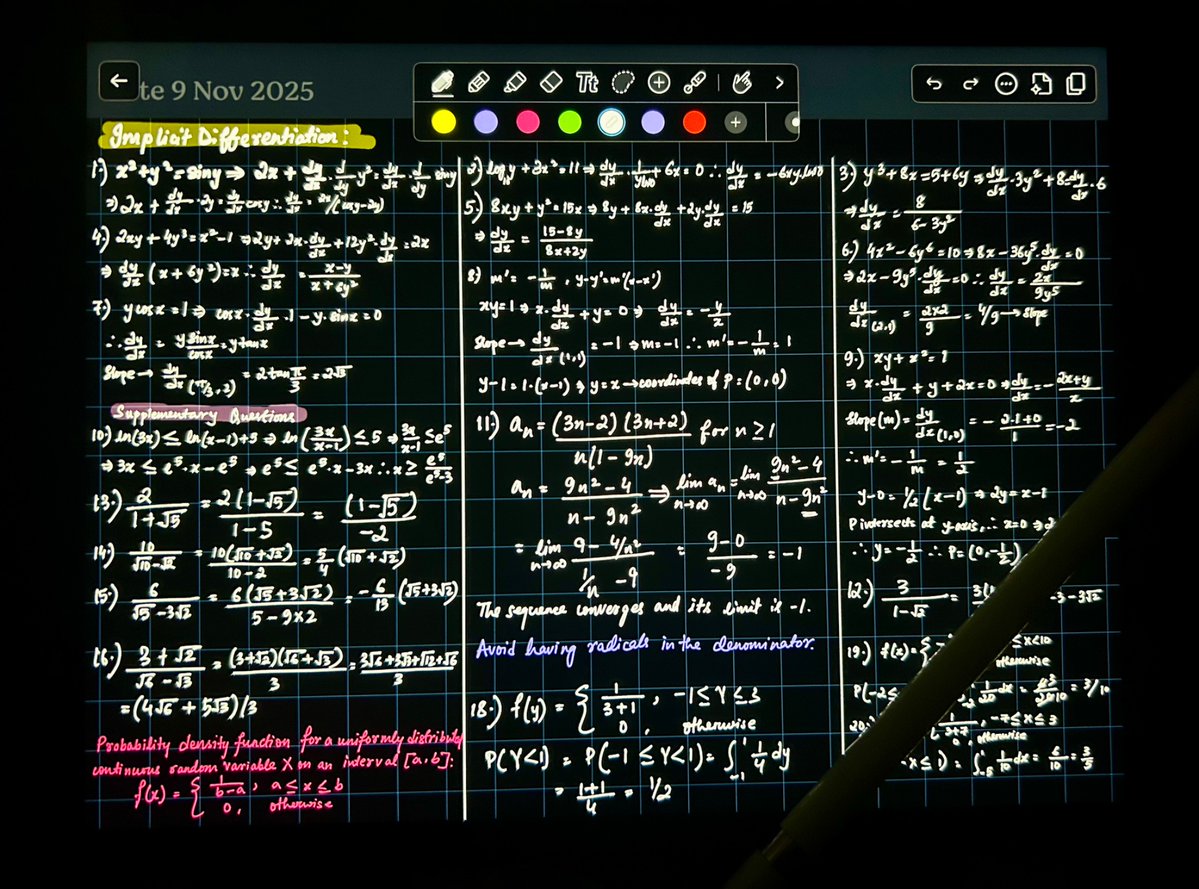 te 9 Nov 2025
Tt
Implicit Differentiation:
1.) x² + y² = siny ⇒ 2x + dy/dx · d/dy y² = dy/dx · d/dy siny
⇒ 2x + dy/dx · 2y = dy/dx cosy ∴ dy/dx = 2x/(cosy-2y)
4.) 2xy + 4y³ = x² - 1 ⇒ 2y + 2x·dy/dx + 12y²·dy/dx = 2x
⇒ dy/dx (x + 6y²) = x ∴ dy/dx = (x-y)/(x+6y²)
7.) y cosx = 1 ⇒ cosx · dy/dx · 1 - y·sinx = 0
∴ dy/dx = y sinx/cosx = y tanx
Slope → dy/dx (π/3, 2) = 2 tan π/3 = 2√3
Supplementary Questions
10.) ln(3x) ≤ ln(x-1) + 5 ⇒ ln(3x/(x-1)) ≤ 5 ⇒ 3x/(x-1) ≤ e⁵
⇒ 3x ≤ e⁵·x - e⁵ ⇒ e⁵ ≤ e⁵·x - 3x ∴ x ≥ e⁵/(e⁵-3)
13.) 2/(1+√5) = 2(1-√5)/(1-5) = (1-√5)/-2
14.) 10/(√10-√2) = 10(√10+√2)/(10-2) = 5/4 (√10+√2)
15.) 6/(√5-3√2) = 6(√5+3√2)/(5-9×2) = -6/13 (√5+3√2)
16.) (3+√2)/(√6-√3) = (3+√2)(√6+√3)/3 = (3√6+3√3+√12+√6)/3
= (4√6 + 5√3)/3
Probability density function for a uniformly distributed
continuous random variable X on an interval [a,b]:
f(x) = { 1/(b-a), a ≤ x ≤ b
0, otherwise
2.) log₁₀y + 3x² = 11 ⇒ dy/dx · 1/(yln10) + 6x = 0 ∴ dy/dx = -6xy·ln10
5.) 8xy + y² = 15x ⇒ 8y + 8x·dy/dx + 2y·dy/dx = 15
⇒ dy/dx = (15-8y)/(8x+2y)
8.) m' = -1/m, y-y' = m'(x-x')
xy = 1 ⇒ x·dy/dx + y = 0 ⇒ dy/dx = -y/x
Slope → dy/dx (1,1) = -1 ⇒ m = -1 ∴ m' = -1/m = 1
y-1 = 1·(x-1) ⇒ y = x → coordinates of P = (0,0)
11.) aₙ = (3n-2)(3n+2)/n(1-9n) for n ≥ 1
aₙ = (9n²-4)/(n-9n²) ⇒ lim n→∞ aₙ = lim n→∞ (9n²-4)/(n-9n²)
= lim n→∞ (9-4/n²)/(1/n-9) = (9-0)/-9 = -1
The sequence converges and its limit is -1.
Avoid having radicals in the denominator.
18.) f(y) = { 1/(3+1), -1 ≤ Y ≤ 3
0, otherwise
P(Y<1) = P(-1 ≤ Y<1) = ∫₋₁¹ 1/4 dy
= (1+1)/4 = 1/2
3.) y³ + 8x = 5 + 6y ⇒ dy/dx · 3y² + 8 = dy/dx · 6
⇒ dy/dx = 8/(6-3y²)
6.) 4x² - 6y⁶ = 10 ⇒ 8x - 36y⁵·dy/dx = 0
⇒ 2x - 9y⁵·dy/dx = 0 ∴ dy/dx = 2x/9y⁵
dy/dx (2,1) = 2×2/9 = 4/9 → Slope
9.) xy + x² = 1
⇒ x·dy/dx + y + 2x = 0 ⇒ dy/dx = -(2x+y)/x
Slope(m) = dy/dx (1,0) = -(2·1+0)/1 = -2
∴ m' = -1/m = 1/2
y-0 = 1/2(x-1) ⇒ 2y = x-1
P intersects at y-axis, ∴ x=0 ⇒ 2
∴ y = -1/2 ∴ P = (0, -1/2)
12.) 3/(1-√2) = 3(1 -3-3√2
19.) f(x) = { ≤ x<10
otherwise
P(-2≤ 1/20 dx = 3/10
20.) -7 ≤ x ≤ 3
0, otherwise
x ≤ 1) = ∫₋₅¹ 1/10 dx = 6/10 = 3/5